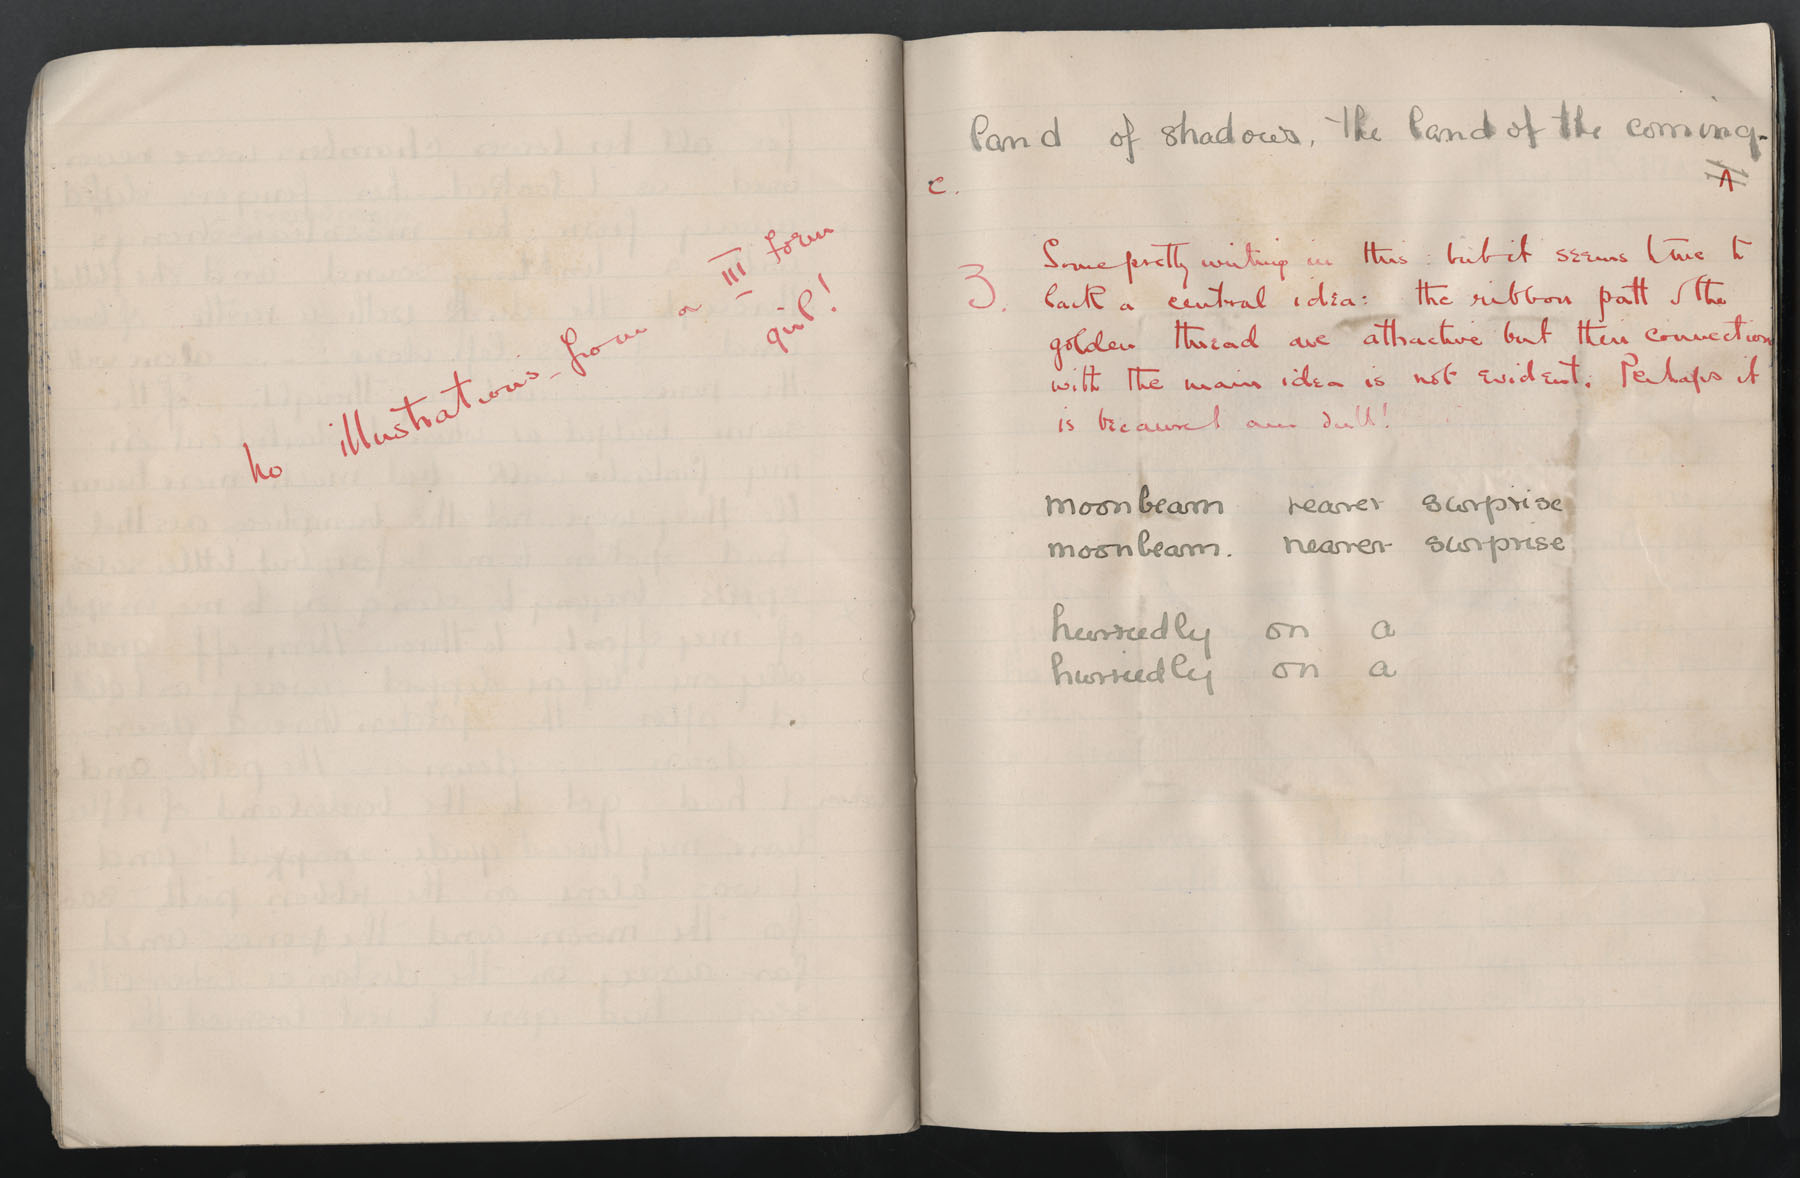 No illustrations from a III form
girl!
land of shadows, the land of the coming.
c.
A
3.
Some pretty writing in this: but it seems to me to
lack a central idea: the ribbon path & the
golden thread are attractive but their connection
with the main idea is not evident. Perhaps it
is because I am dull!
moonbeam nearer surprise
moonbeam. nearer surprise
hurriedly on a
hurriedly on a